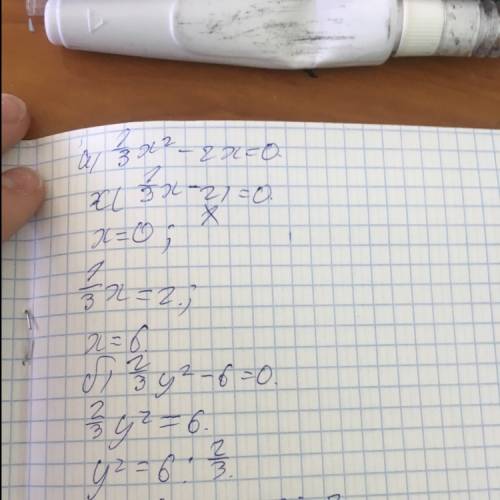 а) 1/3 x² - 2x = 0.
x( 1/3 x - 2) = 0.
x = 0 ;
1/3 x = 2. ;
x = 6
б) 2/3 y² - 6 = 0.
2/3 y² = 6.
y² = 6 : 2/3.